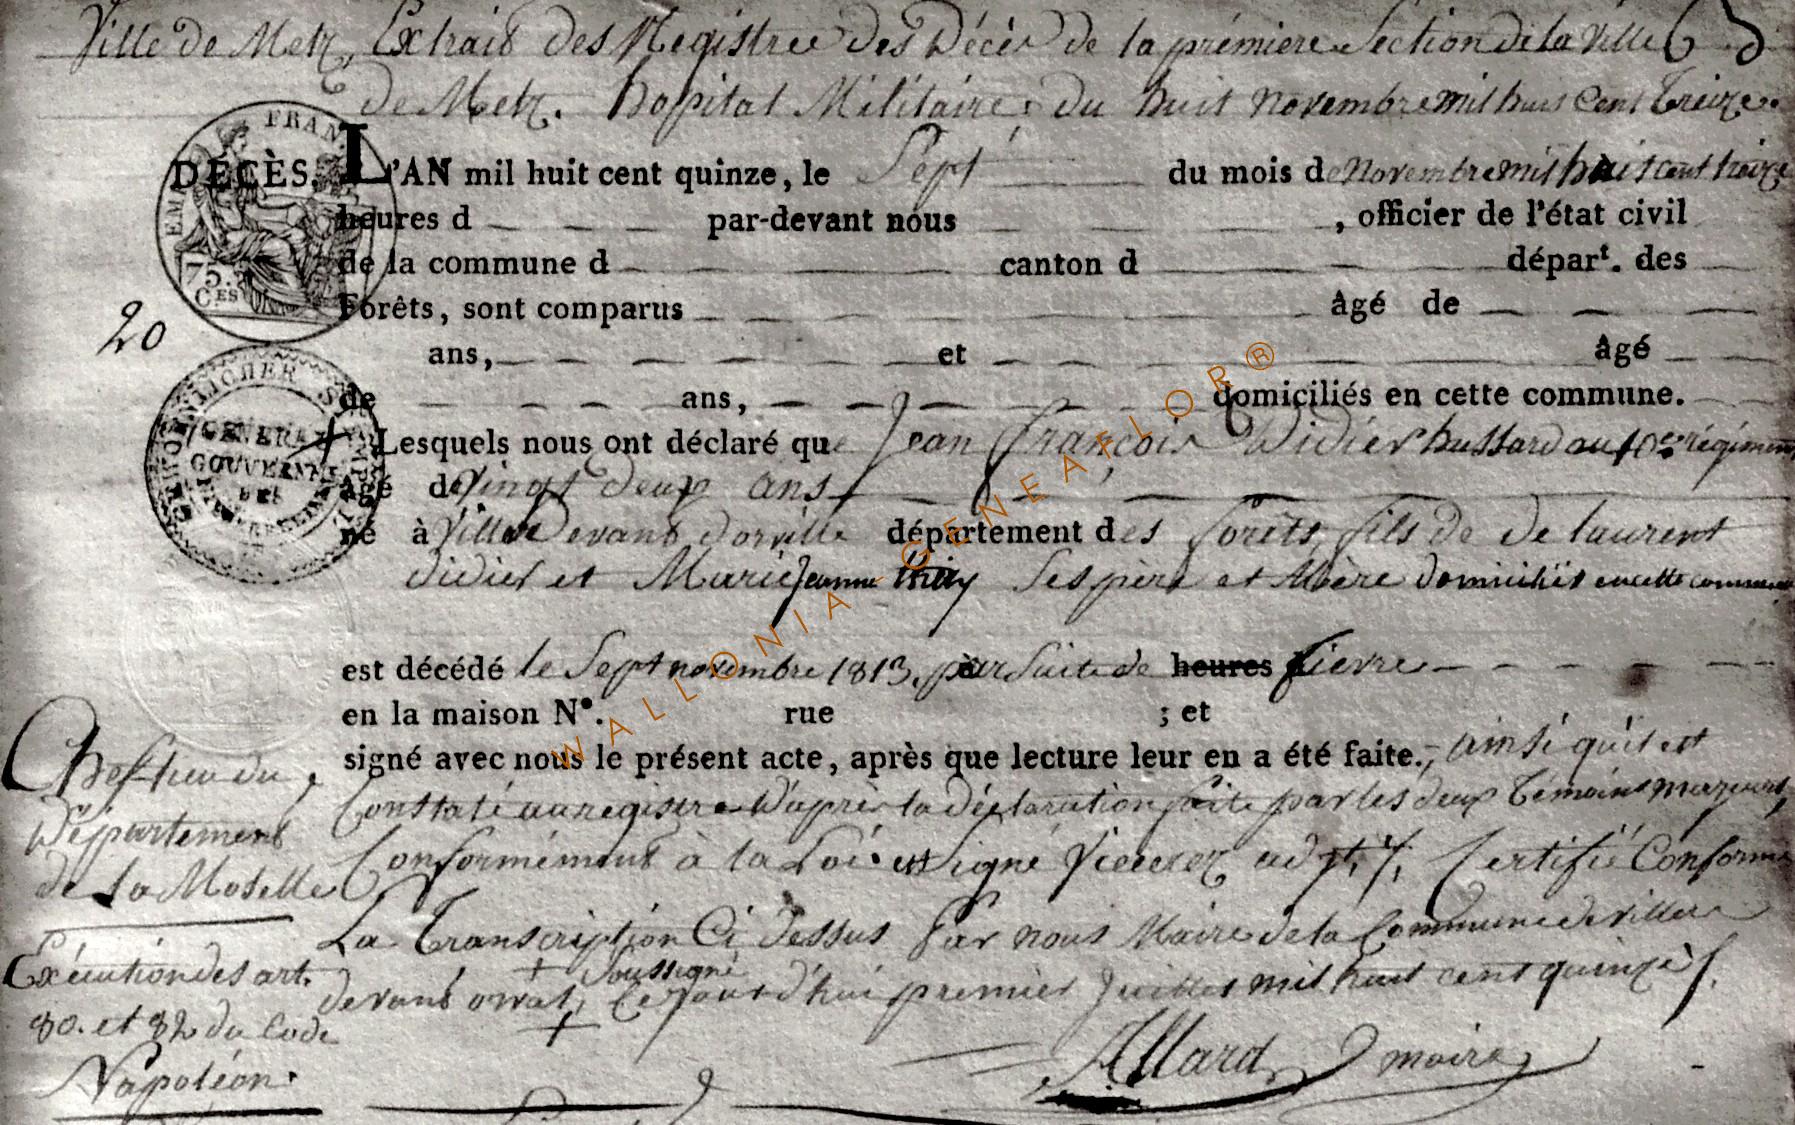 Ville de Metz, Extrait des Registree des Décès de la prémiere Section de la Ville
de Metz. hopital Militaire du huit Novembre mil huit Cent Treize.
DÉCÈS. L'AN mil huit cent quinze, le Sept du mois de Novembre mil huit cent treize
heures d par-devant nous , officier de l'état civil
de la commune d canton d départ. des
Forêts, sont comparus âgé de
20
ans, et âgé
de ans, domiciliés en cette commune.
Lesquels nous ont déclaré que Jean françois Didier hussard au régiment
âgé de Vingt deux ans
né à Ville Devant dorville département des forêts, fils de de laurent
didier et Marie Jeanne Ses père et Mère domiciliés en cette commune
est décédé le Sept novembre 1813, par Suite de heures fievre
en la maison N°. rue ; et
signé avec nous le présent acte, après que lecture leur en a été faite., ainsi qu'il est
Constaté au registre D'après la déclaration faite par les deux Témoins majeurs,
Conformément à la Loi. et Signé adjt, Certifié Conforme
La Transcription Ci dessus Par nous Maire de la Commune de villers
devant orval, + Soussigné Ce jourd'hui premier Juillet mil huit cent quinze
+
Allard maire
Chef lieu du
Département
de La Moselle
Exécution des art.
80. et 82 du Code
Napoléon.
FRAN
EM
75.
CES
GÉNÉRAL
GOUVERNM
DES
WALLONIA-GENEAFLOR®